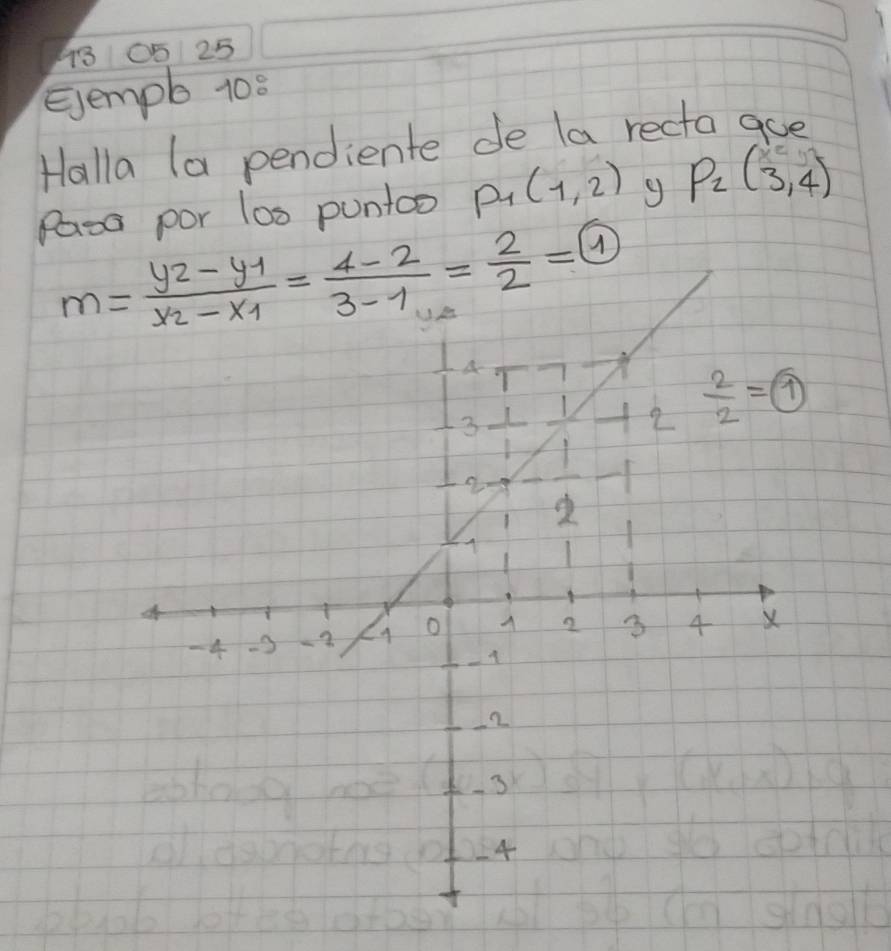 13 05 25
Ejemplo 10:
Halla la pendiente de la recta que
Pasa por los puntos P1 (1,2) y P2 (3,4)
m = y2 - y1 / x2 - x1 = 4 - 2 / 3 - 1 = 2/2 = 1
4
3 2 2/2 = 1
2
2
1
-4 -3 -2 -1 0 1 2 3 4 x
-1
-2
-3
-4